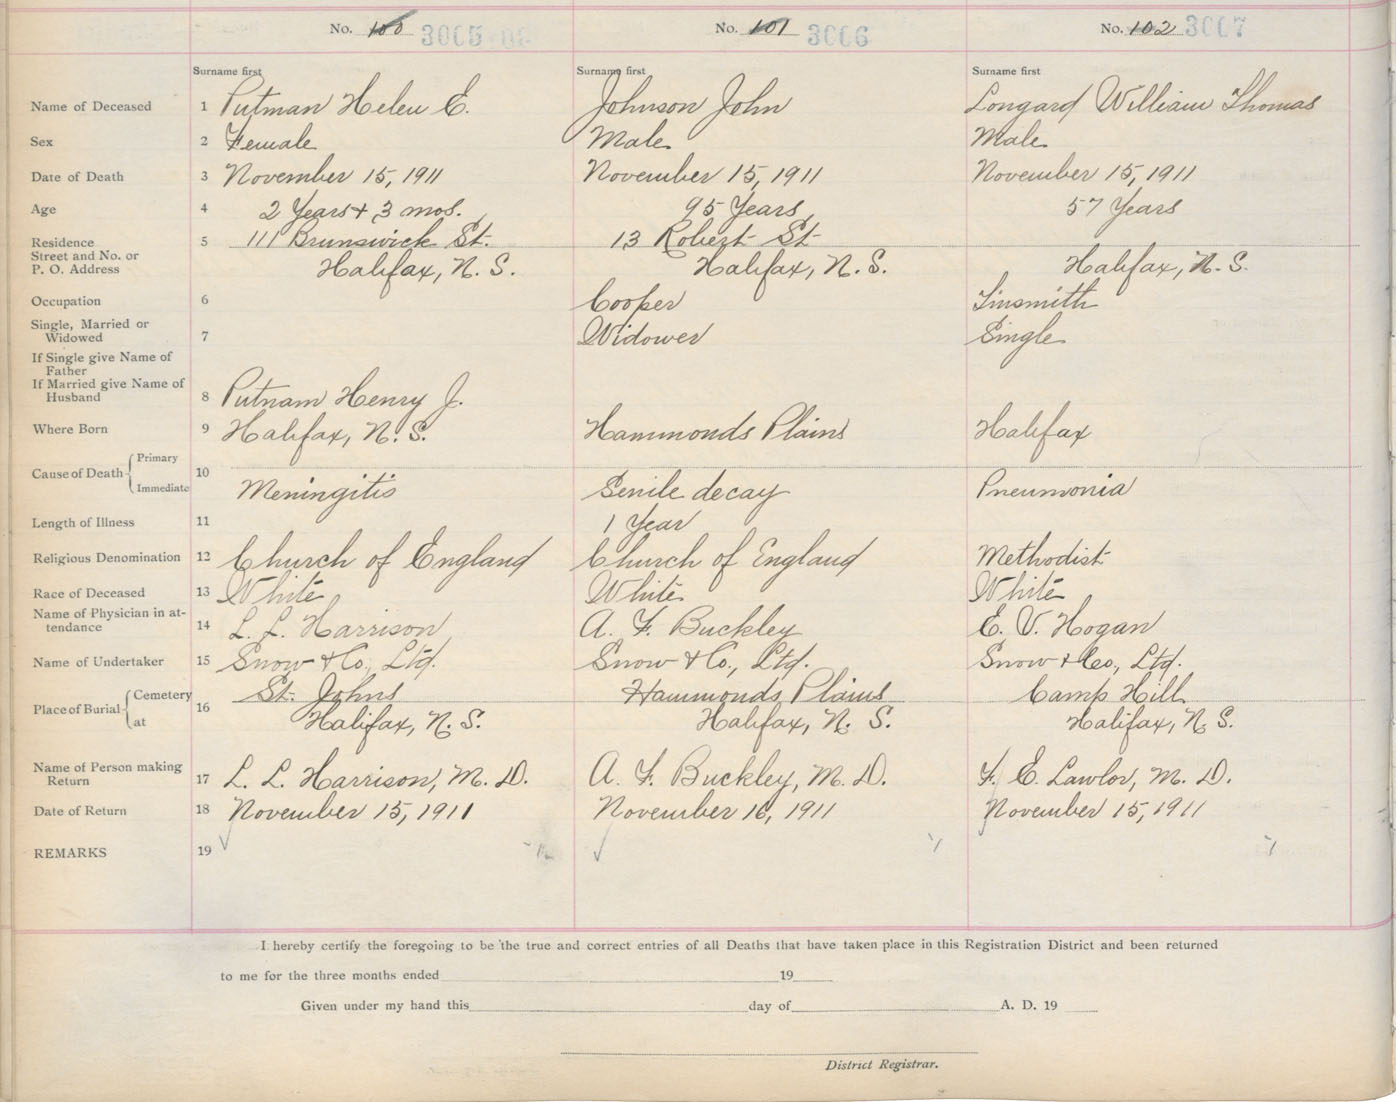 No. 100 3005
No. 101 3006
No. 102 3007
Surname first Surname first Surname first
Name of Deceased 1 Putman Helen E. Johnson John Longard William Thomas
Sex 2 Female Male Male
Date of Death 3 November 15, 1911 November 15, 1911 November 15, 1911
Age 4 2 Years + 3 mos. 95 Years 57 Years
Residence 5 111 Brunswick St. 13 Robert St
Street and No. or
P. O. Address Halifax, N. S. Halifax, N. S. Halifax, N. S.
Occupation 6 Cooper Tinsmith
Single, Married or
Widowed 7 Widower Single
If Single give Name of
Father
If Married give Name of
Husband 8 Putnam Henry J.
Where Born 9 Halifax, N. S. Hammonds Plains Halifax
Cause of Death Primary
Immediate 10 Meningitis Senile decay Pneumonia
Length of Illness 11 1 Year
Religious Denomination 12 Church of England Church of England Methodist
Race of Deceased 13 White White White
Name of Physician in at-
tendance 14 L. L. Harrison A. F. Buckley E. V. Hogan
Name of Undertaker 15 Snow & Co., Ltd. Snow & Co., Ltd. Snow & Co., Ltd.
Place of Burial Cemetery 16 St. Johns Hammonds Plains Camp Hill
at Halifax, N. S. Halifax, N. S. Halifax, N. S.
Name of Person making
Return 17 L. L. Harrison, M. D. A. F. Buckley, M. D. F. E. Lawlor, M. D.
Date of Return 18 November 15, 1911 November 16, 1911 November 15, 1911
REMARKS 19
I hereby certify the foregoing to be the true and correct entries of all Deaths that have taken place in this Registration District and been returned
to me for the three months ended 19
Given under my hand this day of A. D. 19
District Registrar.